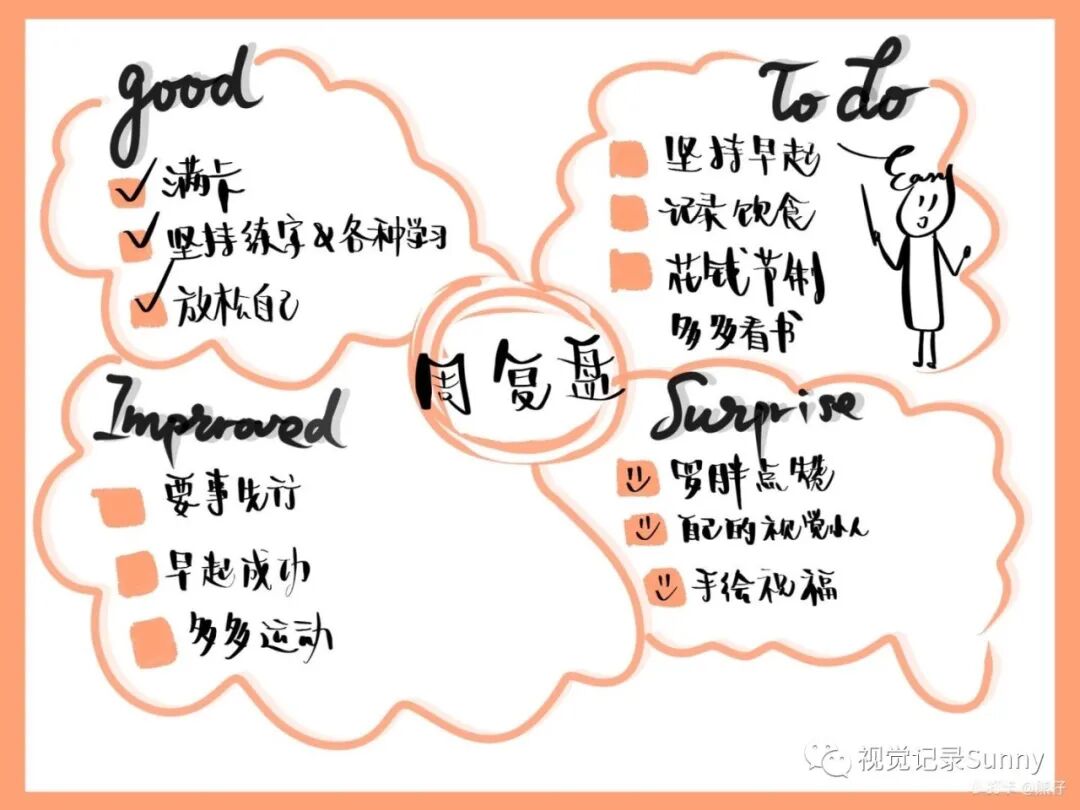 good
满卡
坚持练字&各种学习
放松自己
To do
坚持早起
记录饮食
花钱节制
多多看书
Easy
周复盘
Improved
要事先行
早起成功
多多运动
Surprise
罗胖点赞
自己的视觉小人
手绘祝福
视觉记录Sunny